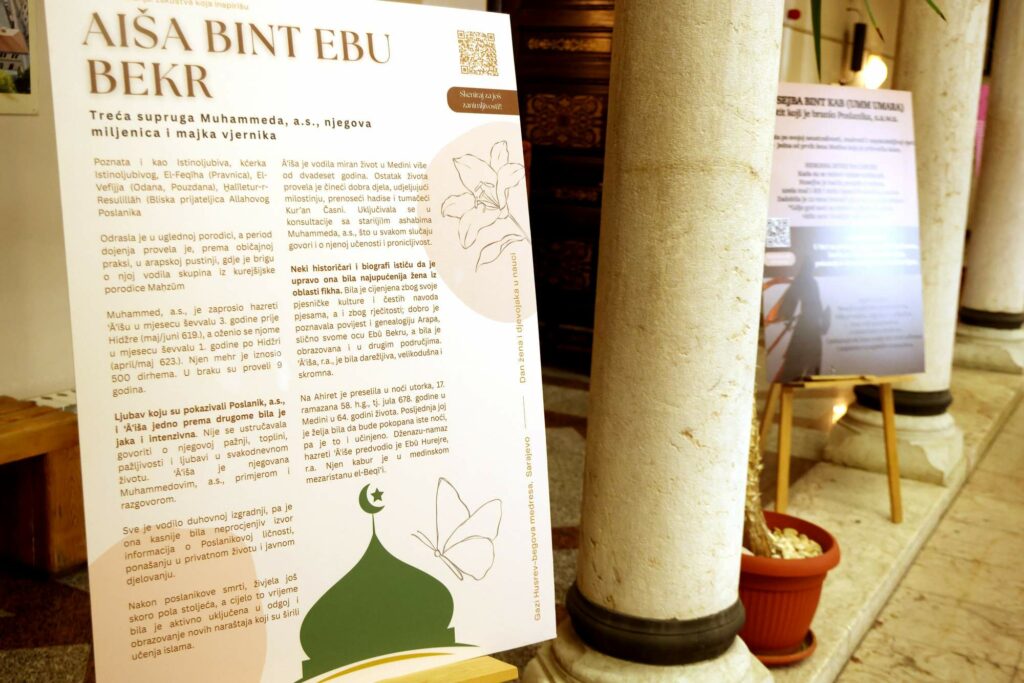 koja inspirišu
AIŠA BINT EBU
BEKR
Treća supruga Muhammeda, a.s., njegova
miljenica i majka vjernika
Skeniraj za još
zanimljivosti!
Poznata i kao Istinoljubiva, kćerka
Istinoljubivog, El-Feqiha (Pravnica), El-
Vefijja (Odana, Pouzdana), Ḥalīletur-r-
Resulillāh (Bliska prijateljica Allahovog
Poslanika
Odrasla je u uglednoj porodici, a period
dojenja provela je, prema običajnoj
praksi, u arapskoj pustinji, gdje je brigu
o njoj vodila skupina iz kurejšijske
porodice Maḥzūm
Muhammed, a.s., je zaprosio hazreti
'Ā'išu u mjesecu ševvalu 3. godine prije
Hidžre (maj/juni 619.), a oženio se njome
u mjesecu ševvalu 1. godine po Hidžri
(april/maj 623.). Njen mehr je iznosio
500 dirhema. U braku su proveli 9
godina.
Ljubav koju su pokazivali Poslanik, a.s.,
i 'Ā'iša jedno prema drugome bila je
jaka i intenzivna. Nije se ustručavala
govoriti o njegovoj pažnji, toplini,
pažljivosti i ljubavi u svakodnevnom
životu. 'Ā'iša je njegovana
Muhammedovim, a.s., primjerom i
razgovorom.
Sve je vodilo duhovnoj izgradnji, pa je
ona kasnije bila neprocjenjiv izvor
informacija o Poslanikovoj ličnosti,
ponašanju u privatnom životu i javnom
djelovanju.
Nakon poslanikove smrti, živjela još
skoro pola stoljeća, a cijelo to vrijeme
bila je aktivno uključena u odgoj i
obrazovanje novih naraštaja koji su širili
učenja islama.
Ā'iša je vodila miran život u Medini više
od dvadeset godina. Ostatak života
provela je čineći dobra djela, udjeljujući
milostinju, prenoseći hadise i tumačeći
Kur'an Časni. Uključivala se u
konsultacije sa starijim ashabima
Muhammeda, a.s., što u svakom slučaju
govori i o njenoj učenosti i pronicljivosti.
Neki historičari i biografi ističu da je
upravo ona bila najupućenija žena iz
oblasti fikha. Bila je cijenjena zbog svoje
pjesničke kulture i čestih navoda
pjesama, a i zbog rječitosti; dobro je
poznavala povijest i genealogiju Arapa,
slično svome ocu Ebū Bekru, a bila je
obrazovana i u drugim područjima.
'Ā'iša, r.a., je bila darežljiva, velikodušna i
skromna.
Na Ahiret je preselila u noći utorka, 17.
ramazana 58. h.g., tj. jula 678. godine u
Medini u 64. godini života. Posljednja joj
je želja bila da bude pokopana iste noći,
pa je to i učinjeno. Dženazu-namaz
hazreti 'Ā'iše predvodio je Ebū Hurejre,
r.a. Njen kabur je u medinskom
mezaristanu el-Beqī'i.
Gazi Husrev-begova medresa, Sarajevo
Dan žena i djevojaka u nauci
SEJBA BINT KAB (UMM UMARA)
štit koji je branio Poslanika, s.a.v.s.